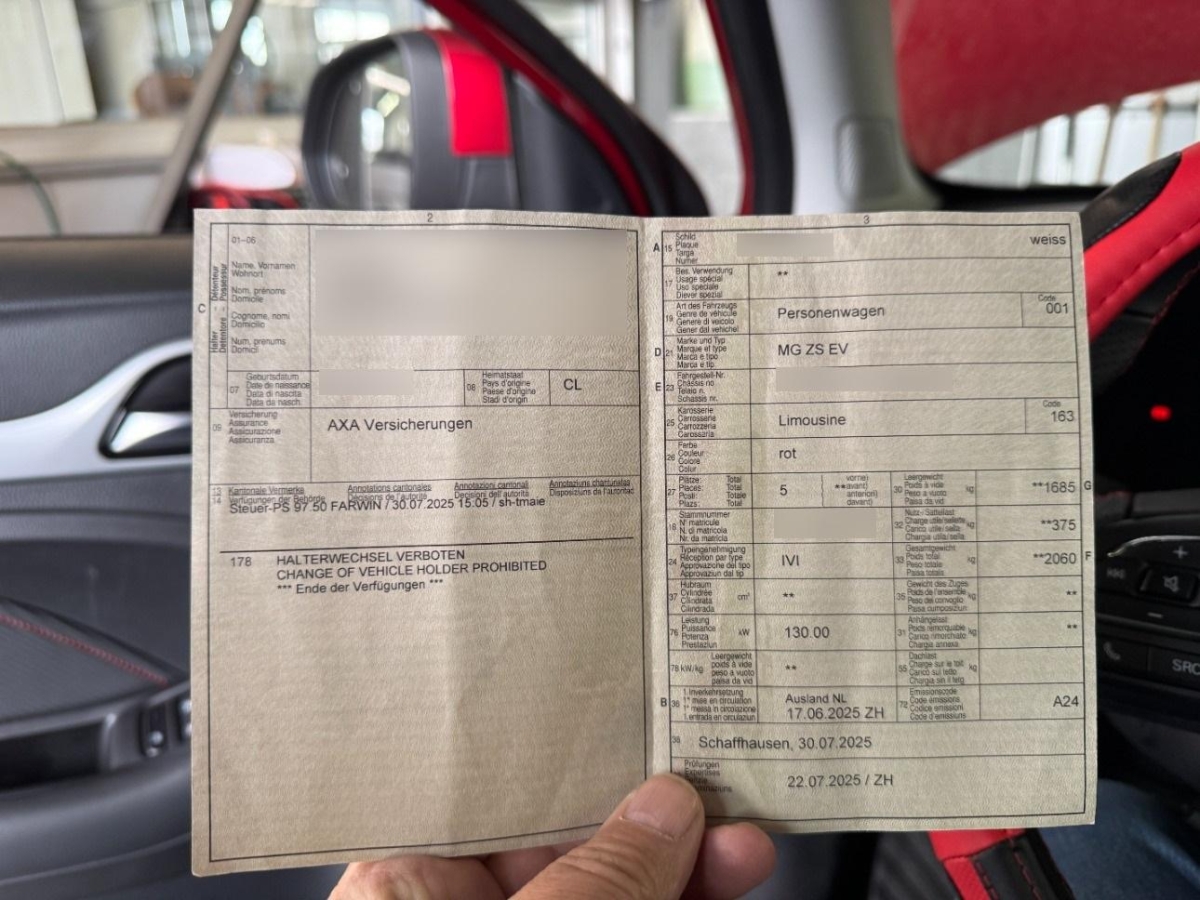 2
C
Halter - Détenteur
Detentore - Possessur
01-06
Name, Vornamen
Wohnort
Nom, prénoms
Domicile
Cognome, nomi
Domicilio
Num, prenums
Domicil
07
Geburtsdatum
Date de naissance
Data di nascita
Data da nasch.
08
Heimatstaat
Pays d'origine
Paese d'origine
Stadi d'origin
CL
09
Versicherung
Assurance
Assicurazione
Assicuranza
AXA Versicherungen
13
14
Kantonale Vermerke
Verfügungen der Behörde
Annotations cantonales
Décisions de l'autorité
Annotazioni cantonali
Decisioni dell'autorità
Annotaziuns chantunalas
Disposiziuns da l'autoritad
Steuer-PS 97.50 FARWIN / 30.07.2025 15:05 / sh-tmaie
178 HALTERWECHSEL VERBOTEN
CHANGE OF VEHICLE HOLDER PROHIBITED
*** Ende der Verfügungen ***
3
A
15
Schild
Plaque
Targa
Numer
weiss
17
Bes. Verwendung
Usage spécial
Uso speciale
Diever spezial
**
19
Art des Fahrzeugs
Genre de véhicule
Genere di veicolo
Gener dal vehichel
Personenwagen
Code
001
D
21
Marke und Typ
Marque et type
Marca e tipo
Marca e tip
MG ZS EV
E
23
Fahrgestell-Nr.
Châssis no
Telaio n.
Schassis nr.
25
Karosserie
Carrosserie
Carrozzeria
Carossaria
Limousine
Code
163
26
Farbe
Couleur
Colore
Colur
rot
27
Plätze: Total
Places: Total
Posti: Totale
Plazs: Total
5
**
vorne)
avant)
anteriori)
davant)
30
Leergewicht
Poids à vide
Peso a vuoto
Paisa da vid
kg
**1685
G
18
Stammnummer
N° matricule
N. di matricola
Nr. da matricla
32
Nutz-/Sattellast
Charge utile/sellette
Carico utile/sella
Chargia utila/sella
kg
**375
24
Typengenehmigung
Réception par type
Approvazione del tipo
Approvaziun dal tip
IVI
33
Gesamtgewicht
Poids total
Peso totale
Paisa totala
kg
**2060
F
37
Hubraum
Cylindrée
Cilindrata
Cilindrada
cm³
**
35
Gewicht des Zuges
Poids de l'ensemble
Peso del convoglio
Paisa cumposiziun
kg
**
76
Leistung
Puissance
Potenza
Prestaziun
kW
130.00
31
Anhängelast
Poids remorquable
Carico rimorchiato
Chargia annexa
kg
**
78
kW/kg
Leergewicht
poids à vide
peso a vuoto
paisa da vid
**
55
Dachlast
Charge sur le toit
Carico sul tetto
Chargia sin il tetg
kg
B
36
1. Inverkehrsetzung
1re mise en circulation
1a messa in circolazione
1. entrada en circulaziun
Ausland NL
17.06.2025 ZH
72
Emissionscode
Code émissions
Codice emissioni
Code d'emissiuns
A24
38
Schaffhausen, 30.07.2025
Prüfungen
Expertises
22.07.2025 / ZH
+
−
SRC